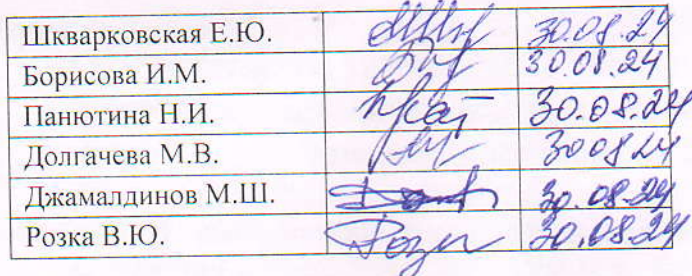 Шкварковская Е.Ю. 30.08.24
Борисова И.М. 30.08.24
Панютина Н.И. 30.08.24
Долгачева М.В. 30 08 24
Джамалдинов М.Ш. 30.08.24
Розка В.Ю. 30.08.24